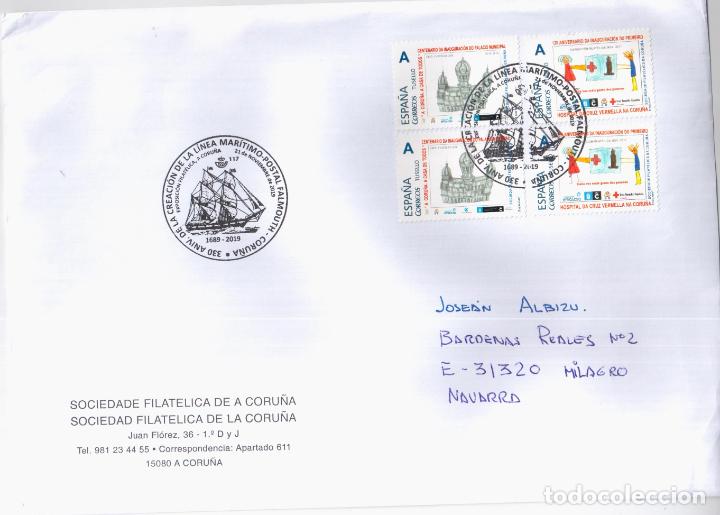 330 ANIV. DE LA CREACIÓN DE LA LÍNEA MARÍTIMO-POSTAL FALMOUTH - CORUÑA
EXPOSICIÓN FILATÉLICA, A CORUÑA
21 de NOVIEMBRE de 2019
117
1689 - 2019
A
CENTENARIO DA INAUGURACIÓN DO PALACIO MUNICIPAL
"A CORUÑA A CASA DE TODOS"
ESPAÑA
CORREOS
TUSELLO
A
ANIVERSARIO DA INAUGURACIÓN DO PRIMEIRO
ESPAÑA
CORREOS
HOSPITAL DA CRUZ VERMELLA NA CORUÑA
330 ANIV. DE LA CREACIÓN DE LA LÍNEA MARÍTIMO-POSTAL FALMOUTH - CORUÑA
1689 - 2019
A
CENTENARIO DA INAUGURACIÓN DO PALACIO MUNICIPAL
"A CORUÑA A CASA DE TODOS"
ESPAÑA
CORREOS
TUSELLO
A
ANIVERSARIO DA INAUGURACIÓN DO PRIMEIRO
ESPAÑA
CORREOS
HOSPITAL DA CRUZ VERMELLA NA CORUÑA
JOSEÁN ALBIZU.
BARDENAS REALES Nº2
E-31320 MILAGRO
NAVARRA
SOCIEDADE FILATELICA DE A CORUÑA
SOCIEDAD FILATELICA DE LA CORUÑA
Juan Flórez, 36 - 1.º D y J
Tel. 981 23 44 55 • Correspondencia: Apartado 611
15080 A CORUÑA
todocoleccion